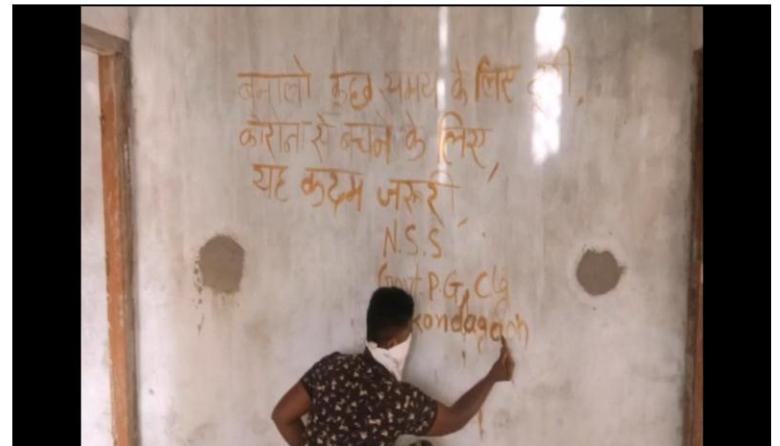 बनालो कुछ समय के लिए दूरी,
कोराना से बचने के लिए,
यह कदम जरूरी,
N.S.S
Govt. P.G. Clg
Kondagaon